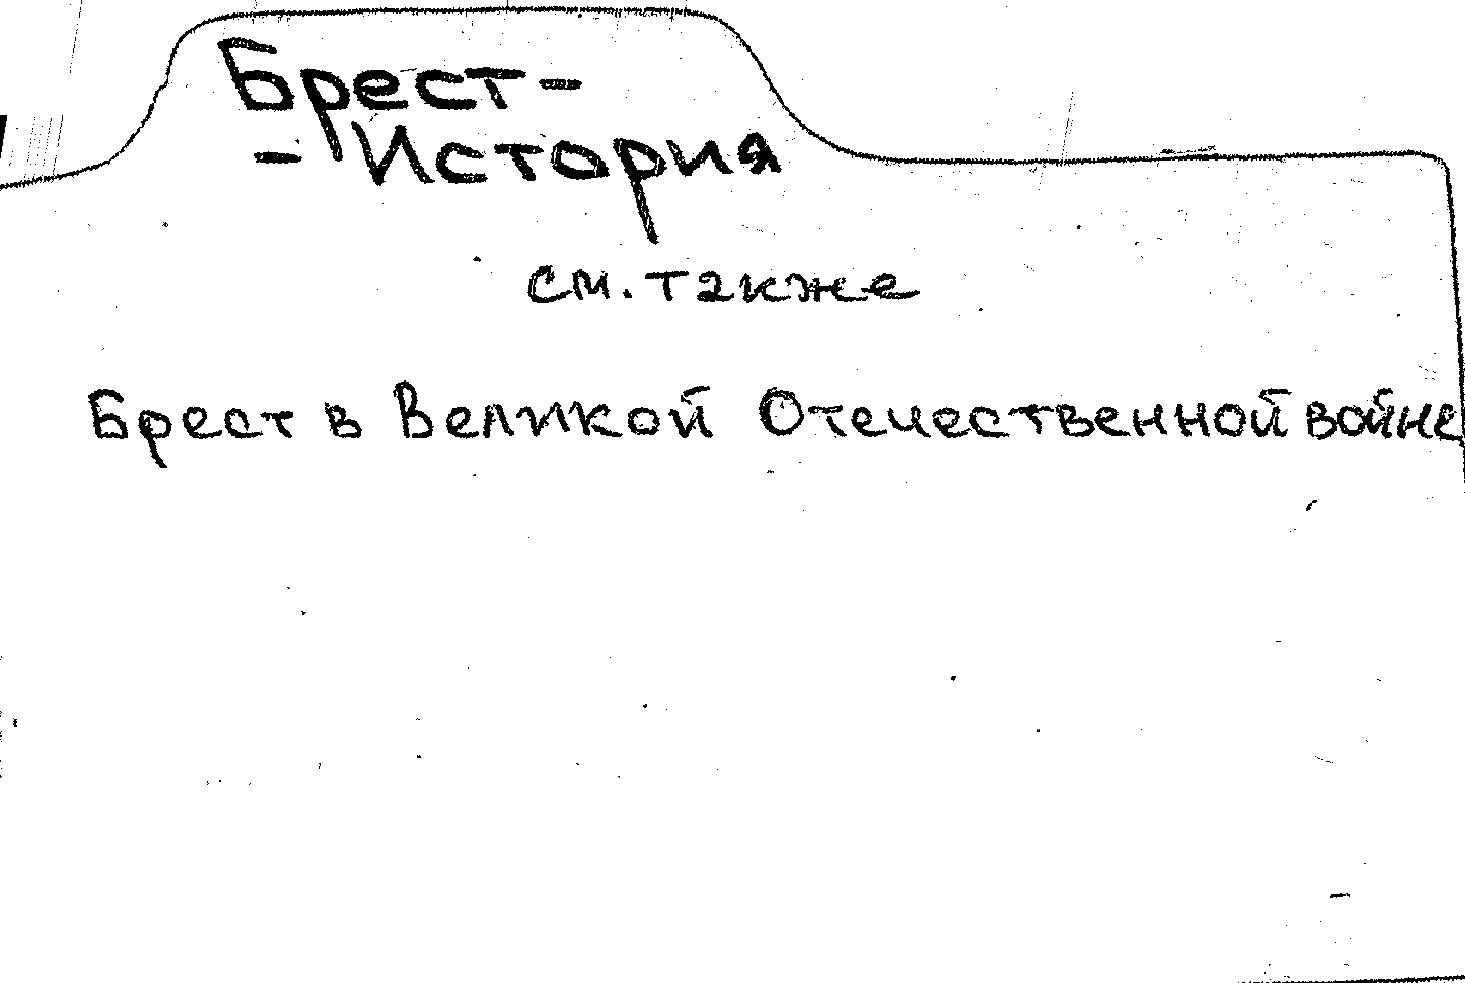 Брест-
- История
см. также
Брест в Великой Отечественной войне